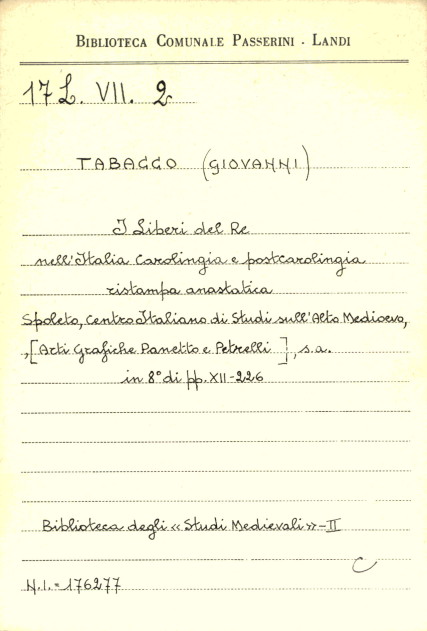 BIBLIOTECA COMUNALE PASSERINI - LANDI
17 L. VII. 2
TABACCO (GIOVANNI)
I Liberi del Re
nell'Italia Carolingia e postcarolingia
ristampa anastatica
Spoleto, Centro Italiano di Studi sull'Alto Medioevo,
,[Arti Grafiche Panetto e Petrelli], s.a.
in 8° di pp. XII-226
Biblioteca degli «Studi Medievali» - II
C
N.I. = 176277